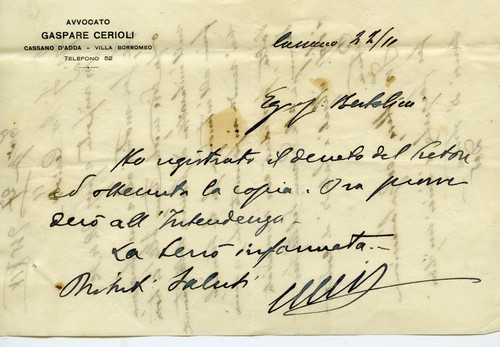 AVVOCATO
GASPARE CERIOLI
CASSANO D'ADDA - VILLA BORROMEO
TELEFONO 52
Cassano 22/11
Bertolini
Ho registrato il decreto del Pretore
ed ottenuta la copia. Ora provve
derò all'Intendenza.
La terrò informata.
Distinti Saluti